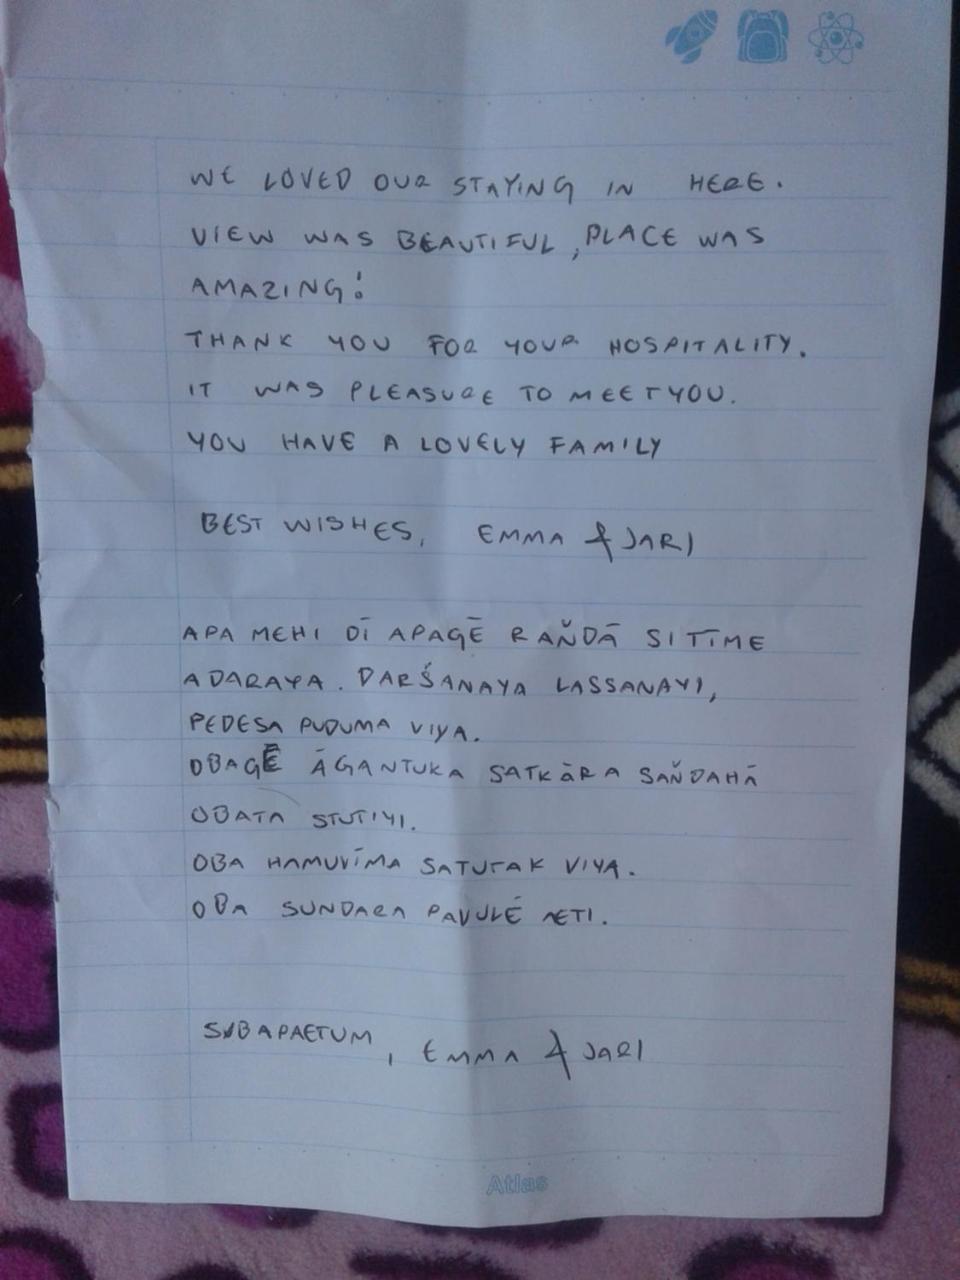 WE LOVED OUR STAYING IN HERE.
VIEW WAS BEAUTIFUL, PLACE WAS
AMAZING!
THANK YOU FOR YOUR HOSPITALITY.
IT WAS PLEASURE TO MEET YOU.
YOU HAVE A LOVELY FAMILY
BEST WISHES, EMMA & JARI
APA MEHI DĪ APAGĒ RAŇDĀ SITĪME
ADARAYA. DARŚANAYA LASSANAYI,
PEDESA PUDUMA VIYA.
OBAGĒ ĀGANTUKA SATKĀRA SAŇDAHĀ
OBATA STUTIYI.
OBA HAMUVĪMA SATUTAK VIYA.
OBA SUNDARA PAVULĒ AETI.
SUBAPAETUM, EMMA & JARI
Atlas